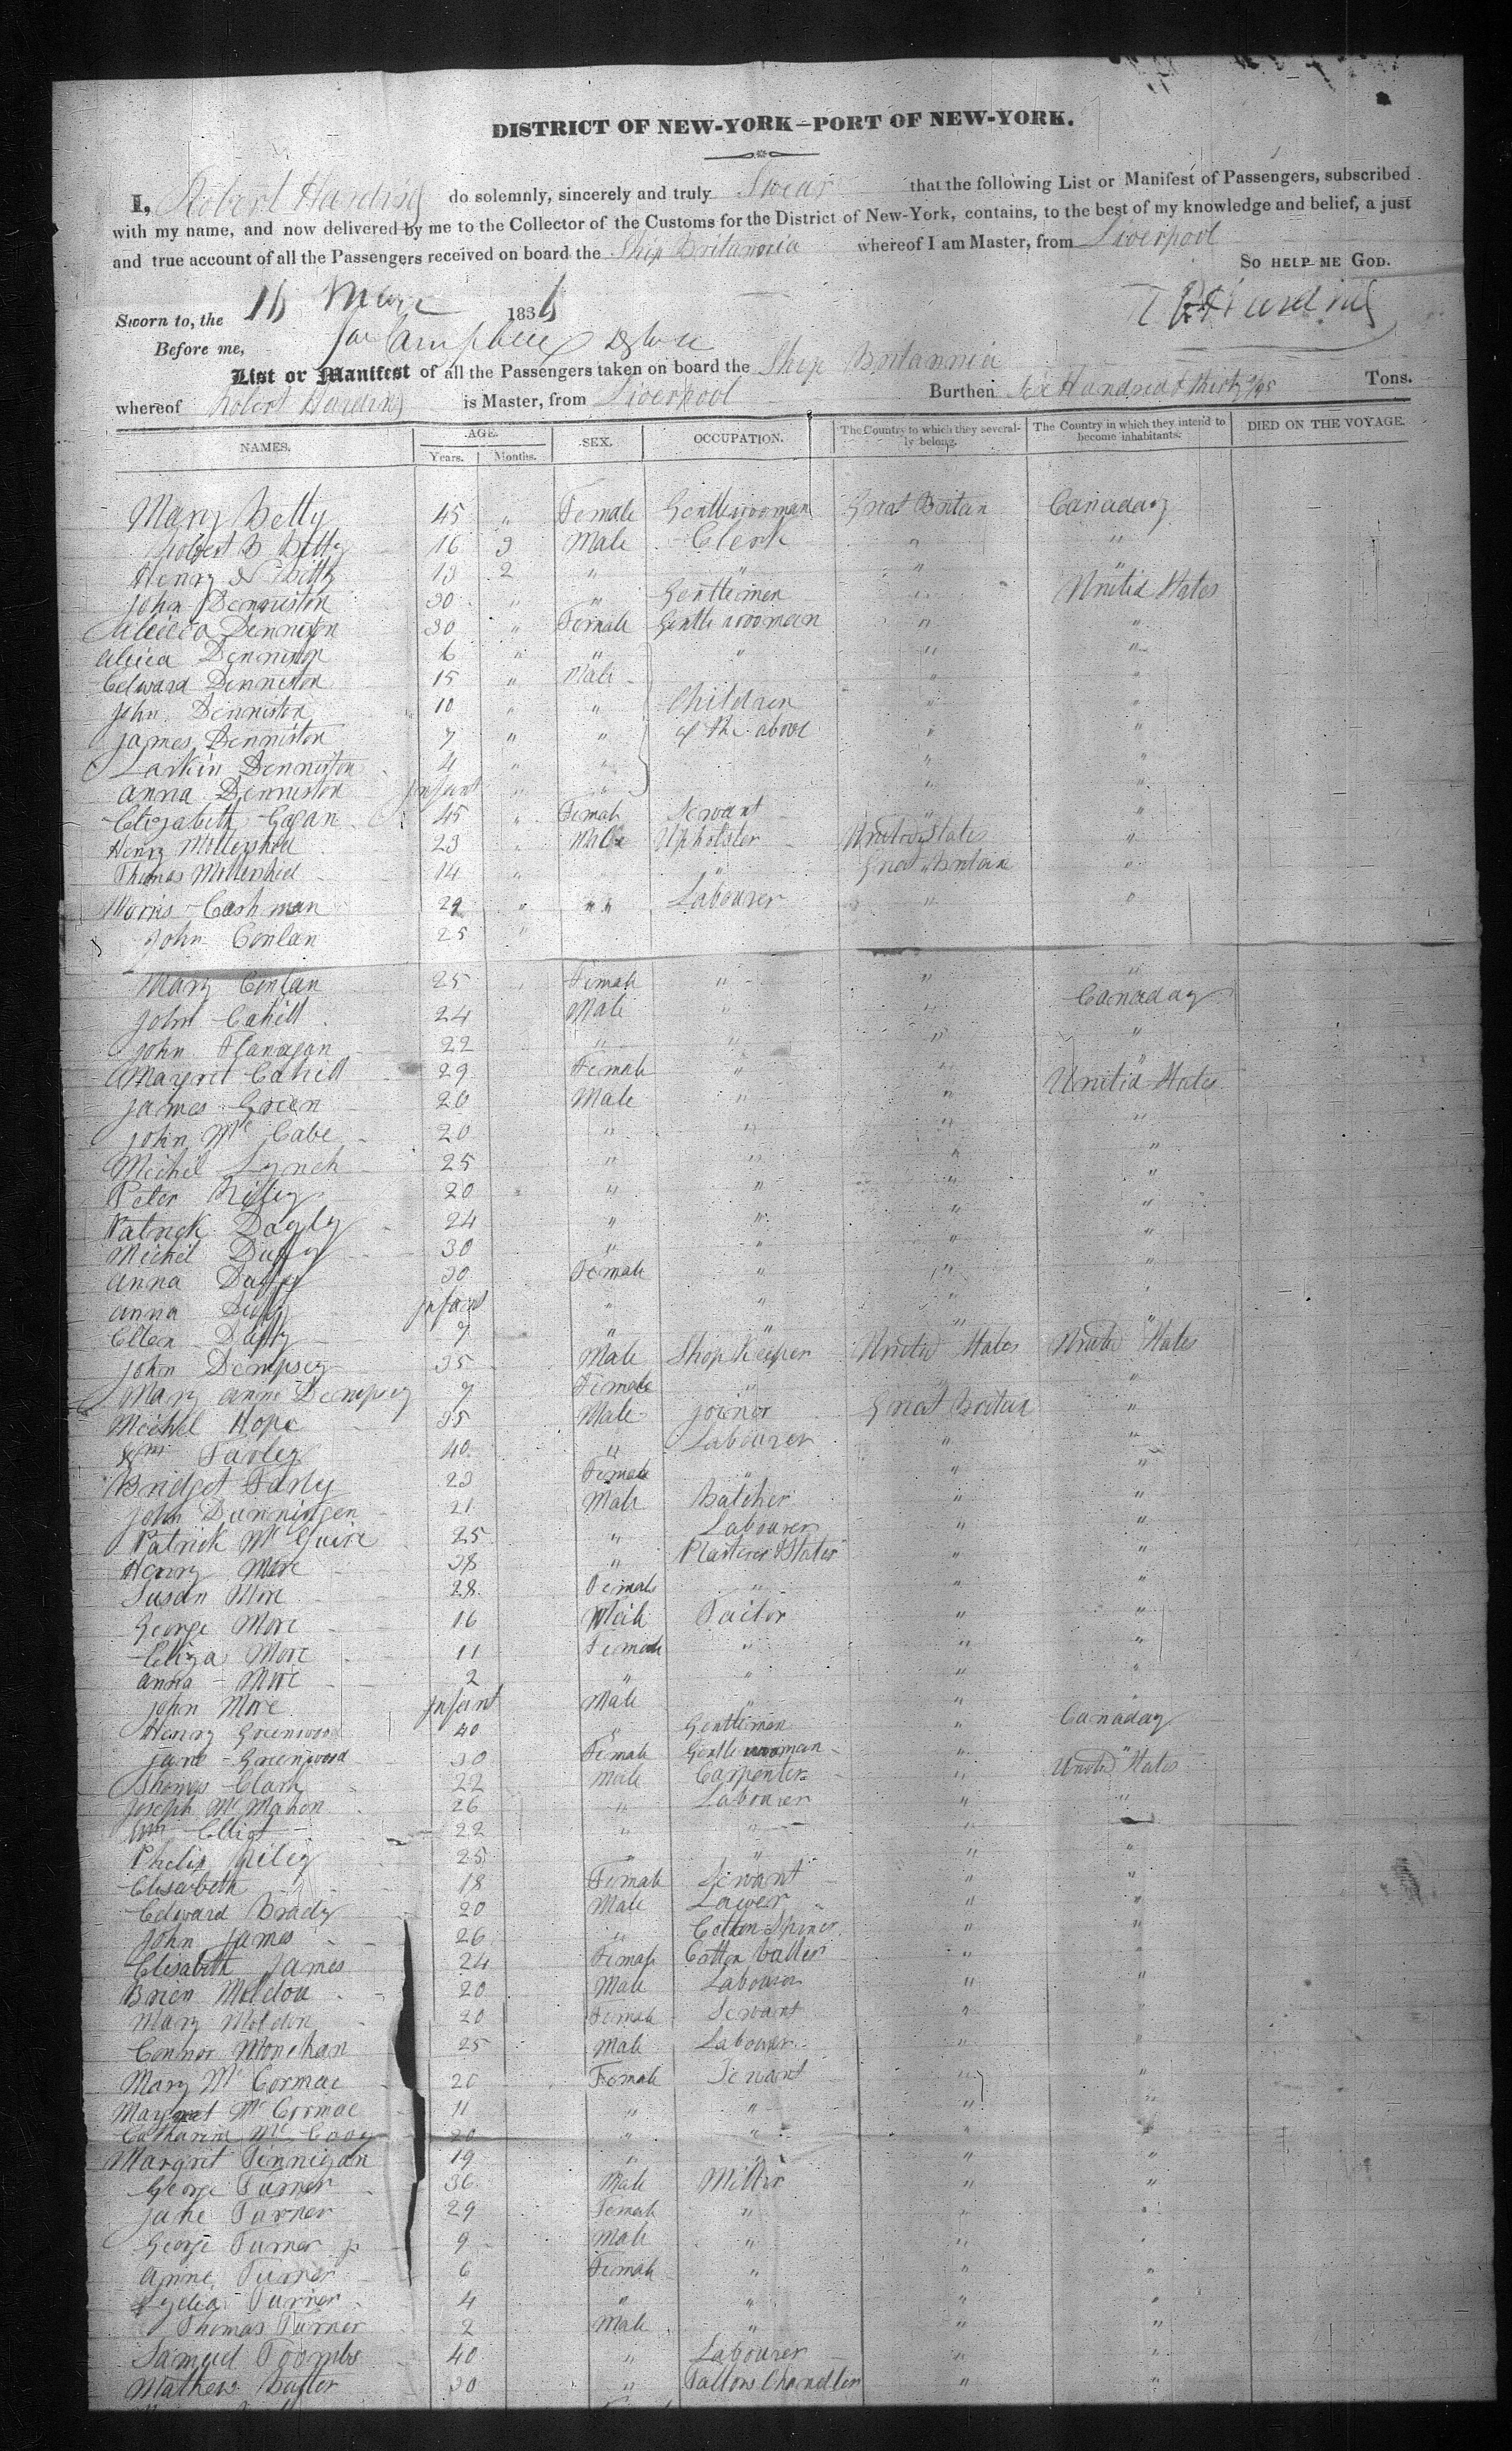 DISTRICT OF NEW-YORK—PORT OF NEW-YORK.
I, Robert Harding do solemnly, sincerely and truly Swear that the following List or Manifest of Passengers, subscribed
with my name, and now delivered by me to the Collector of the Customs for the District of New-York, contains, to the best of my knowledge and belief, a just
and true account of all the Passengers received on board the Ship Britannia whereof I am Master, from Liverpool
SO HELP ME GOD.
Sworn to, the 16 1836
Harding
Before me, Campbell
List or Manifest of all the Passengers taken on board the Ship Britannia
whereof Robert Harding is Master, from Liverpool Burthen Six Hundred & thirty /95 Tons.
NAMES. AGE. Years. Months. SEX. OCCUPATION. The Country to which they severally belong. The Country in which they intend to become inhabitants. DIED ON THE VOYAGE.
Mary Betty 45 " Female Gentlewooman Great Britain Canaday
Robert B Betty 16 3 Male Clerk " "
Henry Betty 13 2 " " " "
John Denniston 30 " " Gentlemen " Unitid States
Denniston 30 " Female Gentle wooman " "
Alicia Denniston 6 " " " " "
Edward Denniston 15 " Male " "
John Denniston 10 " " Children " "
James Denniston 7 " " of the above " "
Larkin Denniston 4 " " " "
Anna Denniston Infant " " " "
Elizabeth Gagan 45 " Femah Servant " "
Henry Mollershed 23 " Male Upholster United States "
Thomas Mollershed 14 " " Great Britain "
Morris Cashman 29 " " " Labourer " "
John Conlan 25 "
Mary Conlan 25 Female " " "
John Cahill 24 Male " " Canaday
John Flanagan 22 " " " "
Margret Cahill 29 Female " " "
James Green 20 Male " " Unitid States
John Mc Cabe 20 " " " "
Michil Lynch 25 " " " "
Peter Rilley 20 " " " "
Patrick Dayly 24 " " " "
Michil Duffy 30 " " " "
Anna Duffy 30 Female " " "
Anna Duffy Infant " " " "
Ellen Duffy 7 " " " "
John Dempsey 35 Male Shop Keeper United States United States
Mary Anne Dempsey 7 Female " "
Michel Hope 35 Male Joinor Great Britan "
Wm Farley 40 " Labourer " "
Bridget Farly 23 Female " " "
John Dunningen 21 Male Butcher " "
Patrick Mc Guire 25 " Labourer " "
Henry More 38 " Plasterer & Slater " "
Susan More 28 Female " " "
George More 16 Male Tailor " "
Eliza More 11 Female " " "
Anna More 2 " " " "
John More Infant Male " " "
Henry Greenwood 40 " Gentleman " Canaday
Jane Greenwood 30 Female Gentle wooman " "
Thomas Clark 22 Male Carpenter " United States
Joseph Mc Mahon 26 " Labourer " "
Wm Elliot 22 " "
Philip Riley 25 " " " "
Elisabeth 18 Female Servant " "
Edward Brady 20 Male Lawer " "
John James 26 " Cotton Spiner " "
Elisabeth James 24 Female Cotton " "
Brien Meldon 20 Male Labourer " "
Mary Meldon 20 Female Servant " "
Connor Monehan 25 Male Labourer " "
Mary Mc Cormac 20 Female Servant " "
Margret Mc Cormac 11 " " " "
Catharine Mc 20 " " " "
Margrit Finnigan 19 " " " "
George Turner 36 Male Miller " "
Jane Turner 29 Female " " "
George Turner Jr 9 Male " " "
Anne Turner 6 Female " " "
Lydia Turner 4 " " " "
Thomas Turner 2 Male " " "
Samuel Toombs 40 " Labourer " "
Mathew Baxter 30 " Tallow Chandler " "